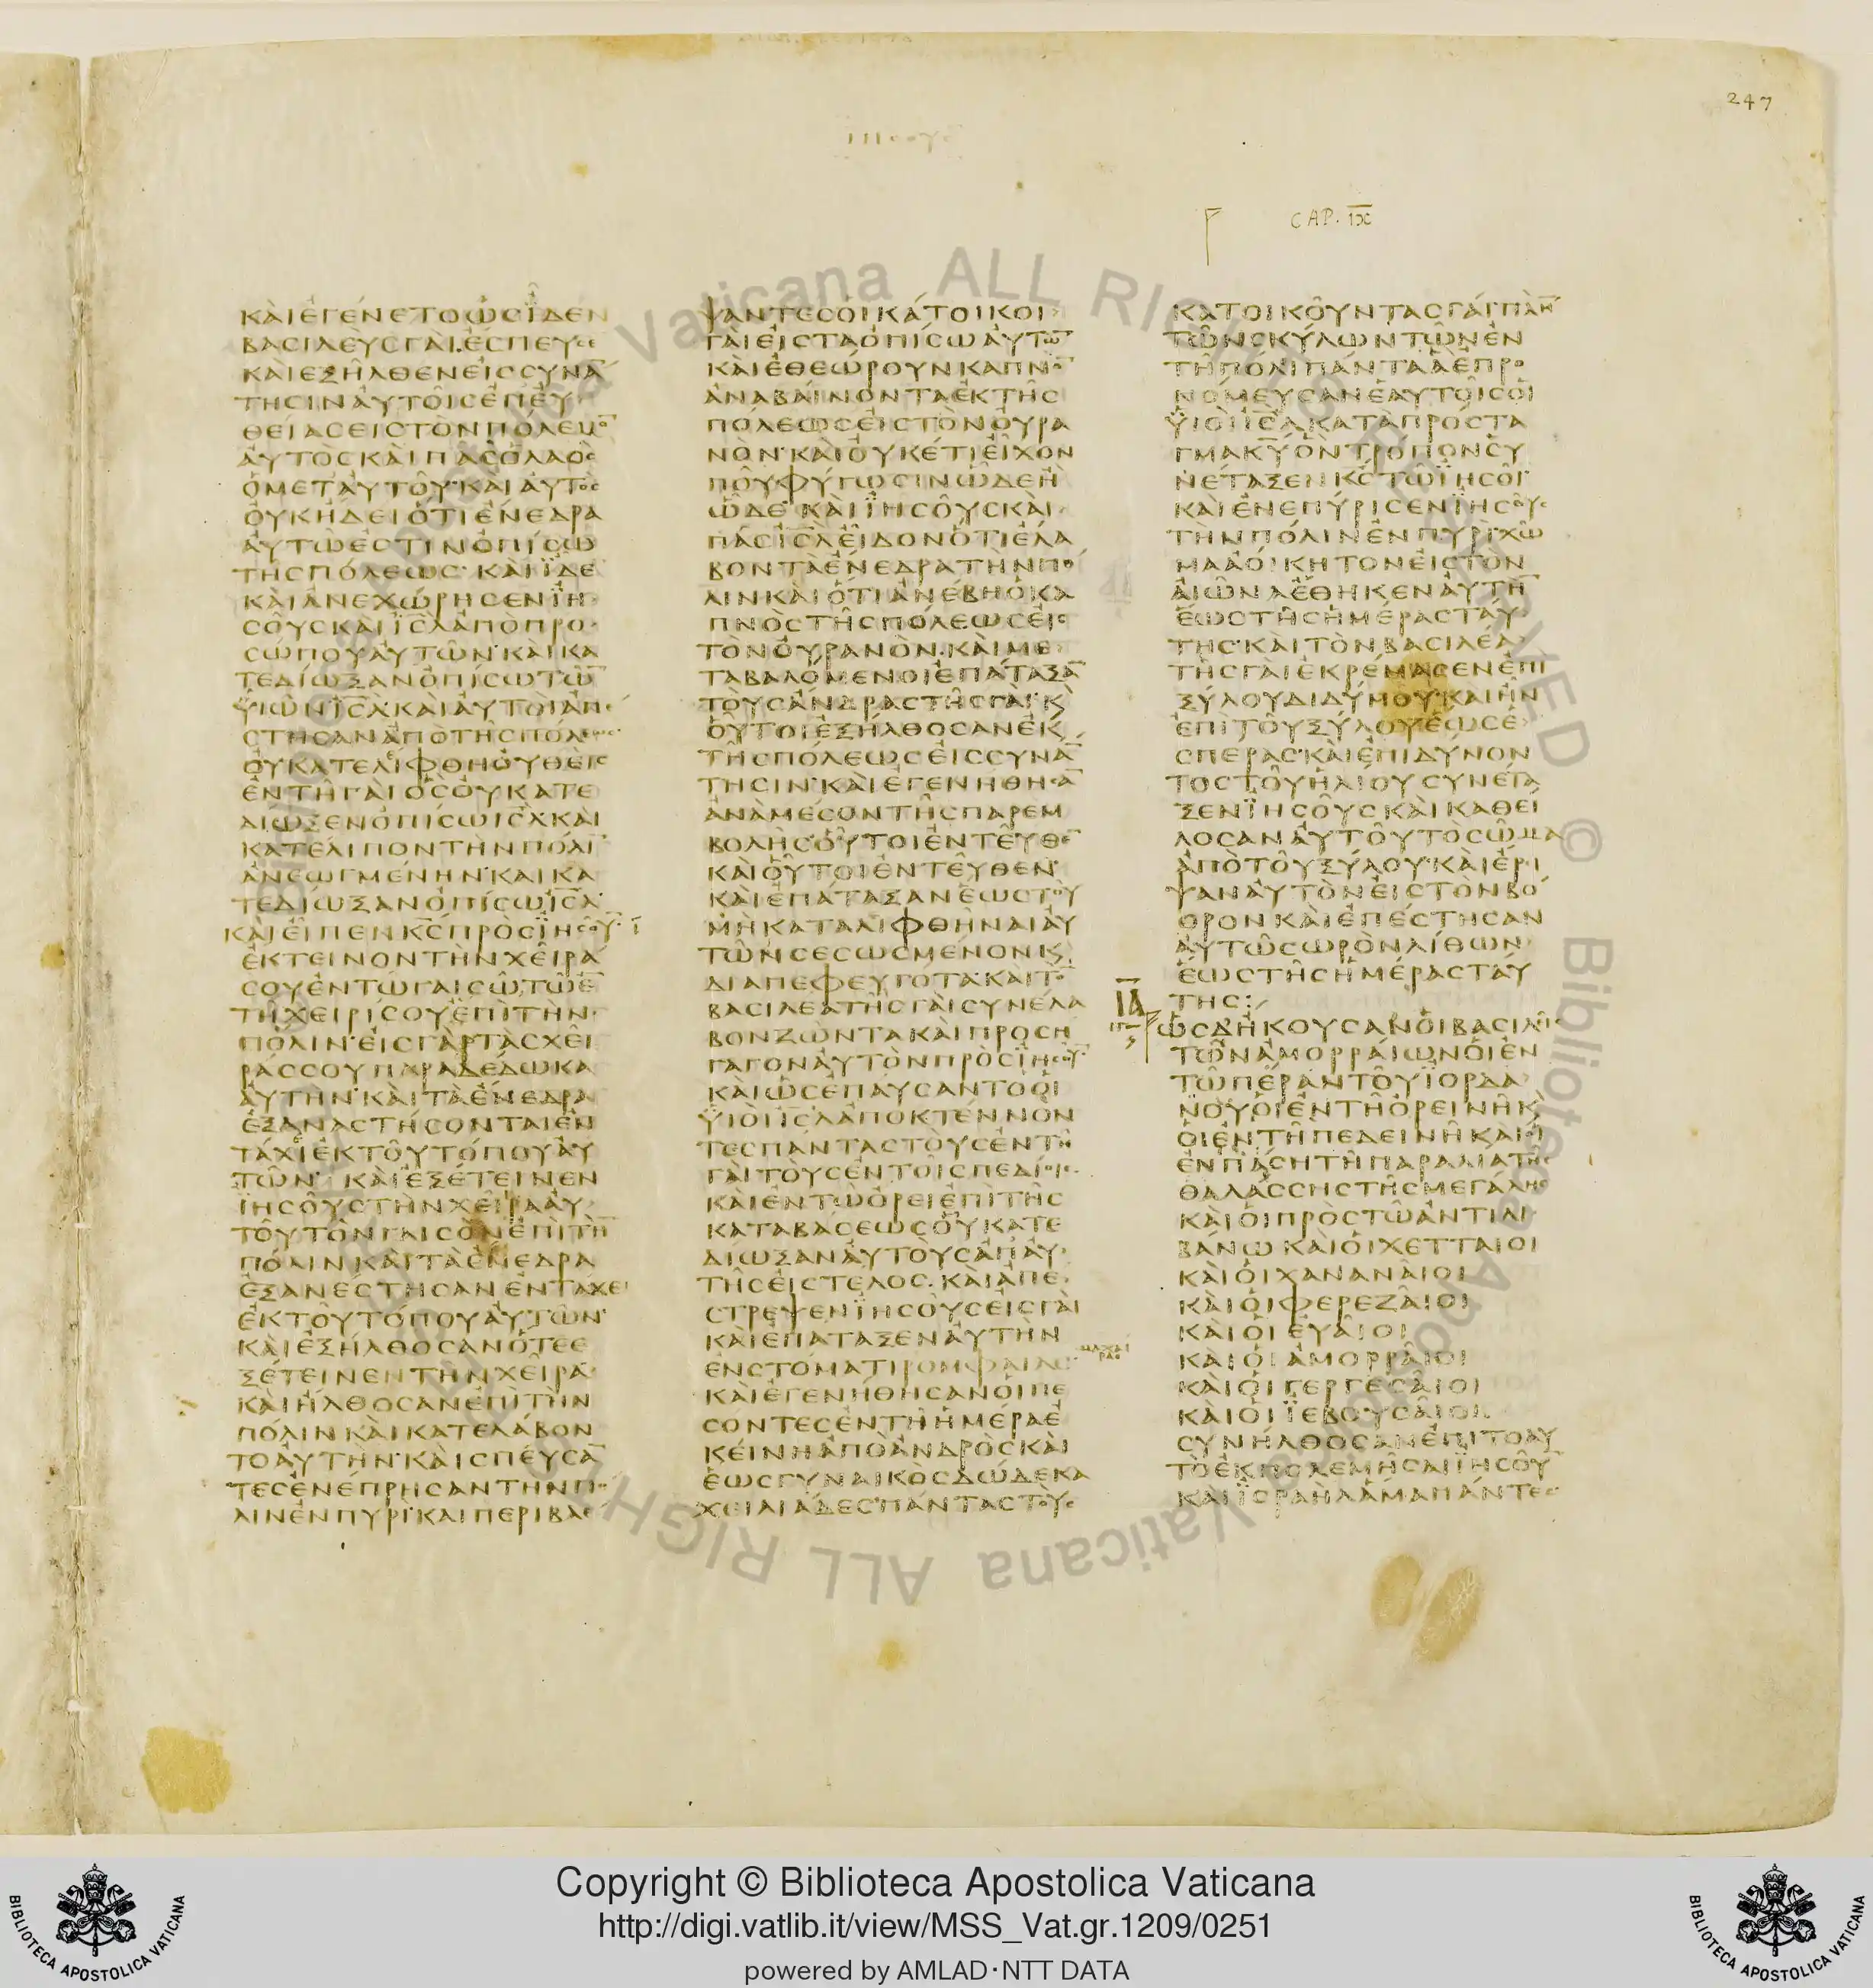 247
CAP. IX
ΚΑΙΕΓΕΝΕΤΟΩϹΪΔΕΝ
ΒΑϹΙΛΕΥϹΓΑΙΕϹΠΕΥϹΕ
ΚΑΙΕΞΗΛΘΕΝΕΙϹϹΥΝΑ̅
ΤΗϹΙΝΑΥΤΟΙϹΕΠΕΥ
ΘΕΙΑϹΕΙϹΤΟΝΠΟΛΕΜΟ̅
ΑΥΤΟϹΚΑΙΠΑϹΟΛΑΟϹ
ΟΜΕΤΑΥΤΟΥ·ΚΑΙΑΥΤΟϹ
ΟΥΚΗΔΕΙΟΤΙΕΝΕΔΡΑ
ΑΥΤΩΕϹΤΙΝΟΠΙϹΩ
ΤΗϹΠΟΛΕΩϹ· ΚΑΙΪΔΕ
ΚΑΙΑΝΕΧΩΡΗϹΕΝΪΗ
ϹΟΥϹΚΑΙΙ̅Ϲ̅Λ̅ΑΠΟΠΡΟ
ϹΩΠΟΥΑΥΤΩΝ·ΚΑΙΚΑ
ΤΕΔΙΩΞΑΝΟΠΙϹΩΤΩ̅
ΫΙΩΝΙ̅Ϲ̅Λ̅·ΚΑΙΑΥΤΟΙΑΠΕ
ϹΤΗϹΑΝΑΠΟΤΗϹΠΟΛΕΩϹ·
ΟΥΚΑΤΕΛΙΦΘΗΟΥΘΕΙϹ
ΕΝΤΗΓΑΙΟϹΟΥΚΑΤΕ
ΔΙΩΞΕΝΟΠΙϹΩΙ̅Ϲ̅Λ̅ΚΑΙ
ΚΑΤΕΛΙΠΟΝΤΗΝΠΟΛΙ̅
ΑΝΕΩΓΜΕΝΗΝ·ΚΑΙΚΑ
ΤΕΔΙΩΞΑΝΟΠΙϹΩΙ̅Ϲ̅Λ̅
ΚΑΙΕΙΠΕΝΚ̅Ϲ̅ΠΡΟϹΪΗϹΟΥ̅·
ΕΚΤΕΙΝΟΝΤΗΝΧΕΙΡΑ
ϹΟΥΕΝΤΩΓΑΙϹΩΤΩΕ̅
ΤΗΧΕΙΡΙϹΟΥΕΠΙΤΗΝ
ΠΟΛΙΝ·ΕΙϹΓΑΡΤΑϹΧΕΙ
ΡΑϹϹΟΥΠΑΡΑΔΕΔΩΚΑ
ΑΥΤΗΝ·ΚΑΙΤΑΕΝΕΔΡΑ
ΕΞΑΝΑϹΤΗϹΟΝΤΑΙΕΝ
ΤΑΧΙΕΚΤΟΥΤΟΠΟΥΑΥ
ΤΩΝ· ΚΑΙΕΞΕΤΕΙΝΕΝ
ΪΗϹΟΥϹΤΗΝΧΕΙΡΑΑΥ
ΤΟΥΤΟΝΓΑΙϹΟΝΕΠΙΤΗ̅
ΠΟΛΙΝΚΑΙΤΑΕΝΕΔΡΑ
ΕΞΑΝΕϹΤΗϹΑΝΕΝΤΑΧΕΙ
ΕΚΤΟΥΤΟΠΟΥΑΥΤΩΝ·
ΚΑΙΕΞΗΛΘΟϹΑΝΟΤΕΕ
ΞΕΤΕΙΝΕΝΤΗΝΧΕΙΡΑ·
ΚΑΙΗΛΘΟϹΑΝΕΠΙΤΗΝ
ΠΟΛΙΝΚΑΙΚΑΤΕΛΑΒΟΝ
ΤΟΑΥΤΗΝ·ΚΑΙϹΠΕΥϹΑ̅
ΤΕϹΕΝΕΠΡΗϹΑΝΤΗΝΠΟ
ΛΙΝΕΝΠΥΡΙ·ΚΑΙΠΕΡΙΒΛΕ
ΨΑΝΤΕϹΟΙΚΑΤΟΙΚΟΙ
ΓΑΙΕΙϹΤΑΟΠΙϹΩΑΥΤΩ̅
ΚΑΙΕΘΕΩΡΟΥΝΚΑΠΝΟ̅
ΑΝΑΒΑΙΝΟΝΤΑΕΚΤΗϹ
ΠΟΛΕΩϹΕΙϹΤΟΝΟΥΡΑ
ΝΟΝ·ΚΑΙΟΥΚΕΤΙΕΙΧΟΝ
ΠΟΥΦΥΓΩϹΙΝΩΔΕΗ
ΩΔΕ ΚΑΙΪΗϹΟΥϹΚΑΙ
ΠΑϹΙ̅Ϲ̅Λ̅ΕΙΔΟΝΟΤΙΕΛΑ
ΒΟΝΤΑΕΝΕΔΡΑΤΗΝΠΟ
ΛΙΝΚΑΙΟΤΙΑΝΕΒΗΟΚΑ
ΠΝΟϹΤΗϹΠΟΛΕΩϹΕΙϹ
ΤΟΝΟΥΡΑΝΟΝ·ΚΑΙΜΕ
ΤΑΒΑΛΟΜΕΝΟΙΕΠΑΤΑΞΑ̅
ΤΟΥϹΑΝΔΡΑϹΤΗϹΓΑΙ·Κ
ΟΥΤΟΙΕΞΗΛΘΟϹΑΝΕΚ
ΤΗϹΠΟΛΕΩϹΕΙϹϹΥΝΑ̅
ΤΗϹΙΝ·ΚΑΙΕΓΕΝΗΘΗϹΑ̅
ΑΝΑΜΕϹΟΝΤΗϹΠΑΡΕΜ
ΒΟΛΗϹΟΥΤΟΙΕΝΤΕΥΘΕ̅
ΚΑΙΟΥΤΟΙΕΝΤΕΥΘΕΝ·
ΚΑΙΕΠΑΤΑΞΑΝΕΩϹΤΟΥ
ΜΗΚΑΤΑΛΙΦΘΗΝΑΙΑΥ
ΤΩΝϹΕϹΩϹΜΕΝΟΝΚ
ΔΙΑΠΕΦΕΥΓΟΤΑ·ΚΑΙΤΟ̅
ΒΑϹΙΛΕΑΤΗϹΓΑΙϹΥΝΕΛΑ
ΒΟΝΖΩΝΤΑΚΑΙΠΡΟϹΗ
ΓΑΓΟΝΑΥΤΟΝΠΡΟϹΪΗϹΟΥ̅·
ΚΑΙΩϹΕΠΑΥϹΑΝΤΟΟΙ
ΫΙΟΙΙ̅Ϲ̅Λ̅ΑΠΟΚΤΕΝΝΟΝ
ΤΕϹΠΑΝΤΑϹΤΟΥϹΕΝΤΗ
ΓΑΙΤΟΥϹΕΝΤΟΙϹΠΕΔΙΟΙϹ
ΚΑΙΕΝΤΩΟΡΕΙΕΠΙΤΗϹ
ΚΑΤΑΒΑϹΕΩϹΟΥΚΑΤΕ
ΔΙΩΞΑΝΑΥΤΟΥϹΑΠΑΥ
ΤΗϹΕΙϹΤΕΛΟϹ·ΚΑΙΑΠΕ
ϹΤΡΕΨΕΝΪΗϹΟΥϹΕΙϹΓΑΙ
ΚΑΙΕΠΑΤΑΞΕΝΑΥΤΗΝ
ΕΝϹΤΟΜΑΤΙΡΟΜΦΑΙΑϹ
μαχαιρας
ΚΑΙΕΓΕΝΗΘΗϹΑΝΟΙΠΕ
ϹΟΝΤΕϹΕΝΤΗΗΜΕΡΑΕ
ΚΕΙΝΗΑΠΟΑΝΔΡΟϹΚΑΙ
ΕΩϹΓΥΝΑΙΚΟϹΔΩΔΕΚΑ
ΧΕΙΛΙΑΔΕϹ·ΠΑΝΤΑϹΤΟΥϹ
ΚΑΤΟΙΚΟΥΝΤΑϹΓΑΙΠΛΗ̅
ΤΩΝϹΚΥΛΩΝΤΩΝΕΝ
ΤΗΠΟΛΙΠΑΝΤΑΑΕΠΡΟ
ΝΟΜΕΥϹΑΝΕΑΥΤΟΙϹΟΙ
ΫΙΟΙΙ̅Ϲ̅Λ̅ΚΑΤΑΠΡΟϹΤΑ
ΓΜΑΚ̅Υ̅ΟΝΤΡΟΠΟΝϹΥ
ΝΕΤΑΞΕΝΚ̅Ϲ̅ΤΩΪΗϹΟΙ·
ΚΑΙΕΝΕΠΥΡΙϹΕΝΪΗϹΟΥϹ
ΤΗΝΠΟΛΙΝΕΝΠΥΡΙ·ΧΩ
ΜΑΑΟΙΚΗΤΟΝΕΙϹΤΟΝ
ΑΙΩΝΑΕΘΗΚΕΝΑΥΤΗ̅
ΕΩϹΤΗϹΗΜΕΡΑϹΤΑΥ
ΤΗϹ·ΚΑΙΤΟΝΒΑϹΙΛΕΑ
ΤΗϹΓΑΙΕΚΡΕΜΑϹΕΝΕΠΙ
ΞΥΛΟΥΔΙΔΥΜΟΥ·ΚΑΙΗΝ
ΕΠΙΤΟΥΞΥΛΟΥΕΩϹΕ
ϹΠΕΡΑϹ·ΚΑΙΕΠΙΔΥΝΟΝ
ΤΟϹΤΟΥΗΛΙΟΥϹΥΝΕΤΑ
ΞΕΝΪΗϹΟΥϹΚΑΙΚΑΘΕΙ
ΛΟϹΑΝΑΥΤΟΥΤΟϹΩΜΑ
ΑΠΟΤΟΥΞΥΛΟΥ·ΚΑΙΕΡΙ
ΨΑΝΑΥΤΟΝΕΙϹΤΟΝΒΟ
ΘΡΟΝΚΑΙΕΠΕϹΤΗϹΑΝ
ΑΥΤΩϹΩΡΟΝΛΙΘΩΝ
ΕΩϹΤΗϹΗΜΕΡΑϹΤΑΥ
ΤΗϹ:
ΙΔ
ΩϹΔΗΚΟΥϹΑΝΟΙΒΑϹΙΛΕΙϹ
ΤΩΝΑΜΟΡΡΑΙΩΝΟΙΕΝ
ΤΩΠΕΡΑΝΤΟΥΪΟΡΔΑ
ΝΟΥΟΙΕΝΤΗΟΡΕΙΝΗΚ
ΟΙΕΝΤΗΠΕΔΕΙΝΗΚΑΙΟΙ
ΕΝΠΑϹΗΤΗΠΑΡΑΛΙΑΤΗϹ
ΘΑΛΑϹϹΗϹΤΗϹΜΕΓΑΛΗϹ
ΚΑΙΟΙΠΡΟϹΤΩΑΝΤΙΛΙ
ΒΑΝΩΚΑΙΟΙΧΕΤΤΑΙΟΙ
ΚΑΙΟΙΧΑΝΑΝΑΙΟΙ
ΚΑΙΟΙΦΕΡΕΖΑΙΟΙ
ΚΑΙΟΙΕΥΑΙΟΙ
ΚΑΙΟΙΑΜΟΡΡΑΙΟΙ
ΚΑΙΟΙΓΕΡΓΕϹΑΙΟΙ
ΚΑΙΟΙΪΕΒΟΥϹΑΙΟΙ
ϹΥΝΗΛΘΟϹΑΝΕΠΙΤΟΑΥ
ΤΟΕΚΠΟΛΕΜΗϹΑΙΪΗϹΟΥ̅
ΚΑΙΪϹΡΑΗΛΑΜΑΠΑΝΤΕϹ·
Copyright © Biblioteca Apostolica Vaticana
http://digi.vatlib.it/view/MSS_Vat.gr.1209/0251
powered by AMLAD·NTT DATA
BIBLIOTECA APOSTOLICA VATICANA
BIBLIOTECA APOSTOLICA VATICANA